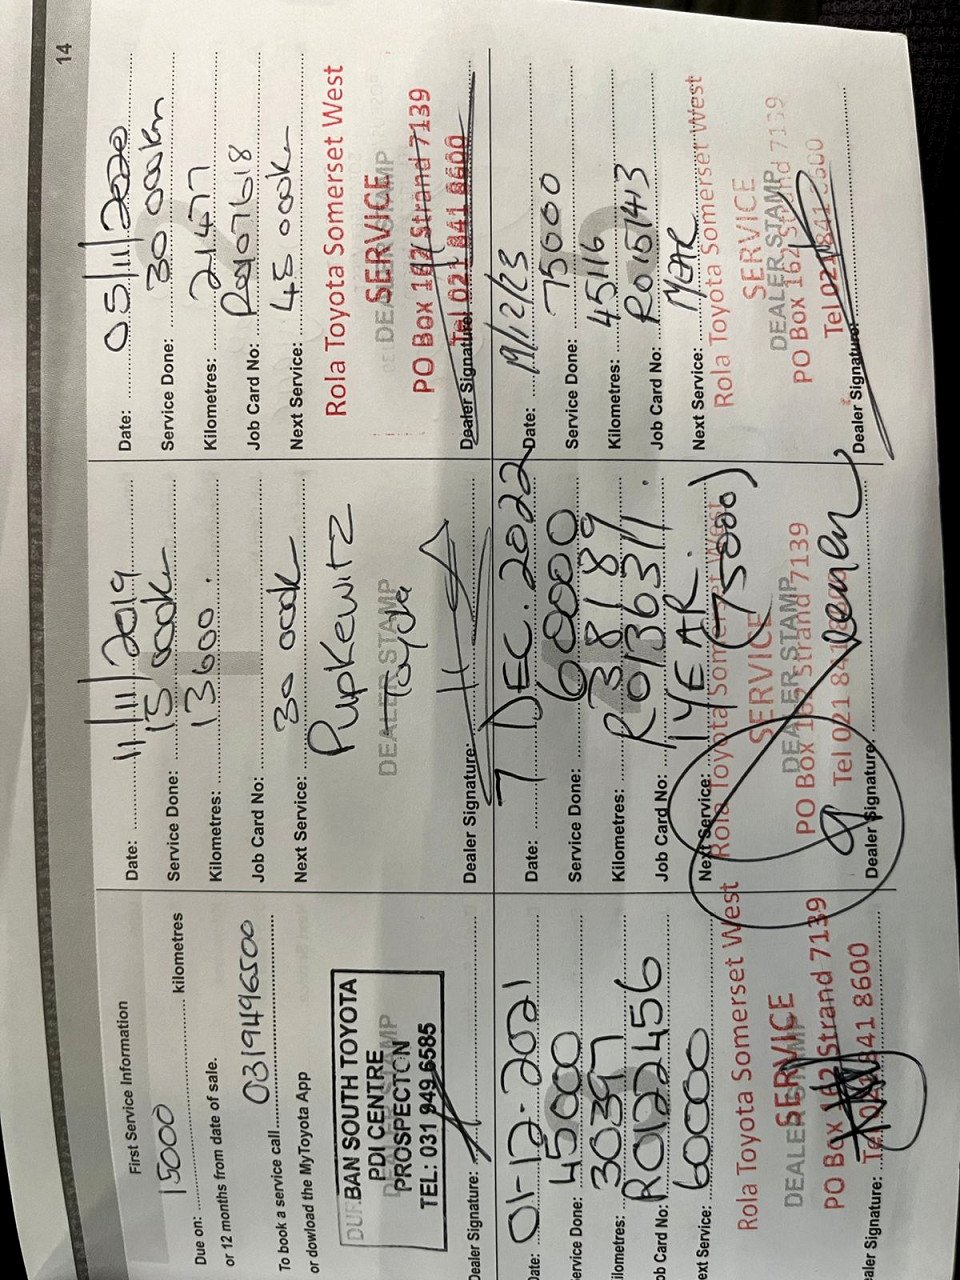 14
First Service Information
Due on: 15000 kilometres
or 12 months from date of sale.
To book a service call 0319496500
or dowload the MyToyota App
DEALER STAMP
DURBAN SOUTH TOYOTA
PDI CENTRE
PROSPECTON
TEL: 031 949 6585
Dealer Signature:
Date: 11/11/2019
Service Done: 15 000km
Kilometres: 13600.
Job Card No:
Next Service: 30 000km
Pupkewitz
DEALER STAMP
Toyota
Dealer Signature:
Date: 05/11/2020
Service Done: 30 000km
Kilometres: 21477
Job Card No: R0107618
Next Service: 45 000km
Rola Toyota Somerset West
DEALER STAMP
SERVICE
PO Box 162 Strand 7139
Tel 021 841 8600
Dealer Signature:
Date: 01-12-2021
Service Done: 45000
Kilometres: 30397
Job Card No: R0122456
Next Service: 60000
Rola Toyota Somerset West
SERVICE
DEALER STAMP
PO Box 162 Strand 7139
Tel 021 841 8600
Dealer Signature:
Date: 7 DEC. 2022
Service Done: 60000
Kilometres: 38189
Job Card No: R0136311.
Next Service: 1YEAR. (75000)
Rola Toyota Somerset West
SERVICE
DEALER STAMP
PO Box 162 Strand 7139
Tel 021 841 8600
Dealer Signature:
Date: 19/12/23
Service Done: 75000
Kilometres: 45116
Job Card No: R0151413
Next Service: 1YEAR
Rola Toyota Somerset West
SERVICE
DEALER STAMP
PO Box 162 Strand 7139
Tel 021 841 8600
Dealer Signature: